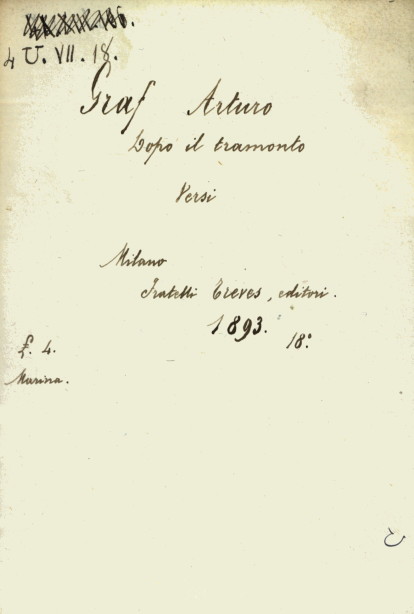 4 U. VII. 18.
Graf Arturo
Dopo il tramonto
Versi
Milano
Fratelli Treves, editori.
1893.
18°
£. 4.
Marina.